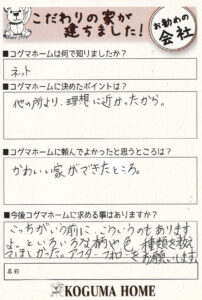 こだわりの家が
建ちました!
お勧めの
会社
■コグマホームは何で知りましたか?
ネット
■コグマホームに決めたポイントは?
他の所より、理想に近かったから。
■コグマホームに頼んでよかったと思うところは?
かわいい家ができたところ。
■今後コグマホームに求める事はありますか?
こっちがいう前に、こういうのもあります
よ。といろいろな柄や色、種類を教え
てほしかった。アフターフォローをお願いします。
名前
KOGUMA HOME